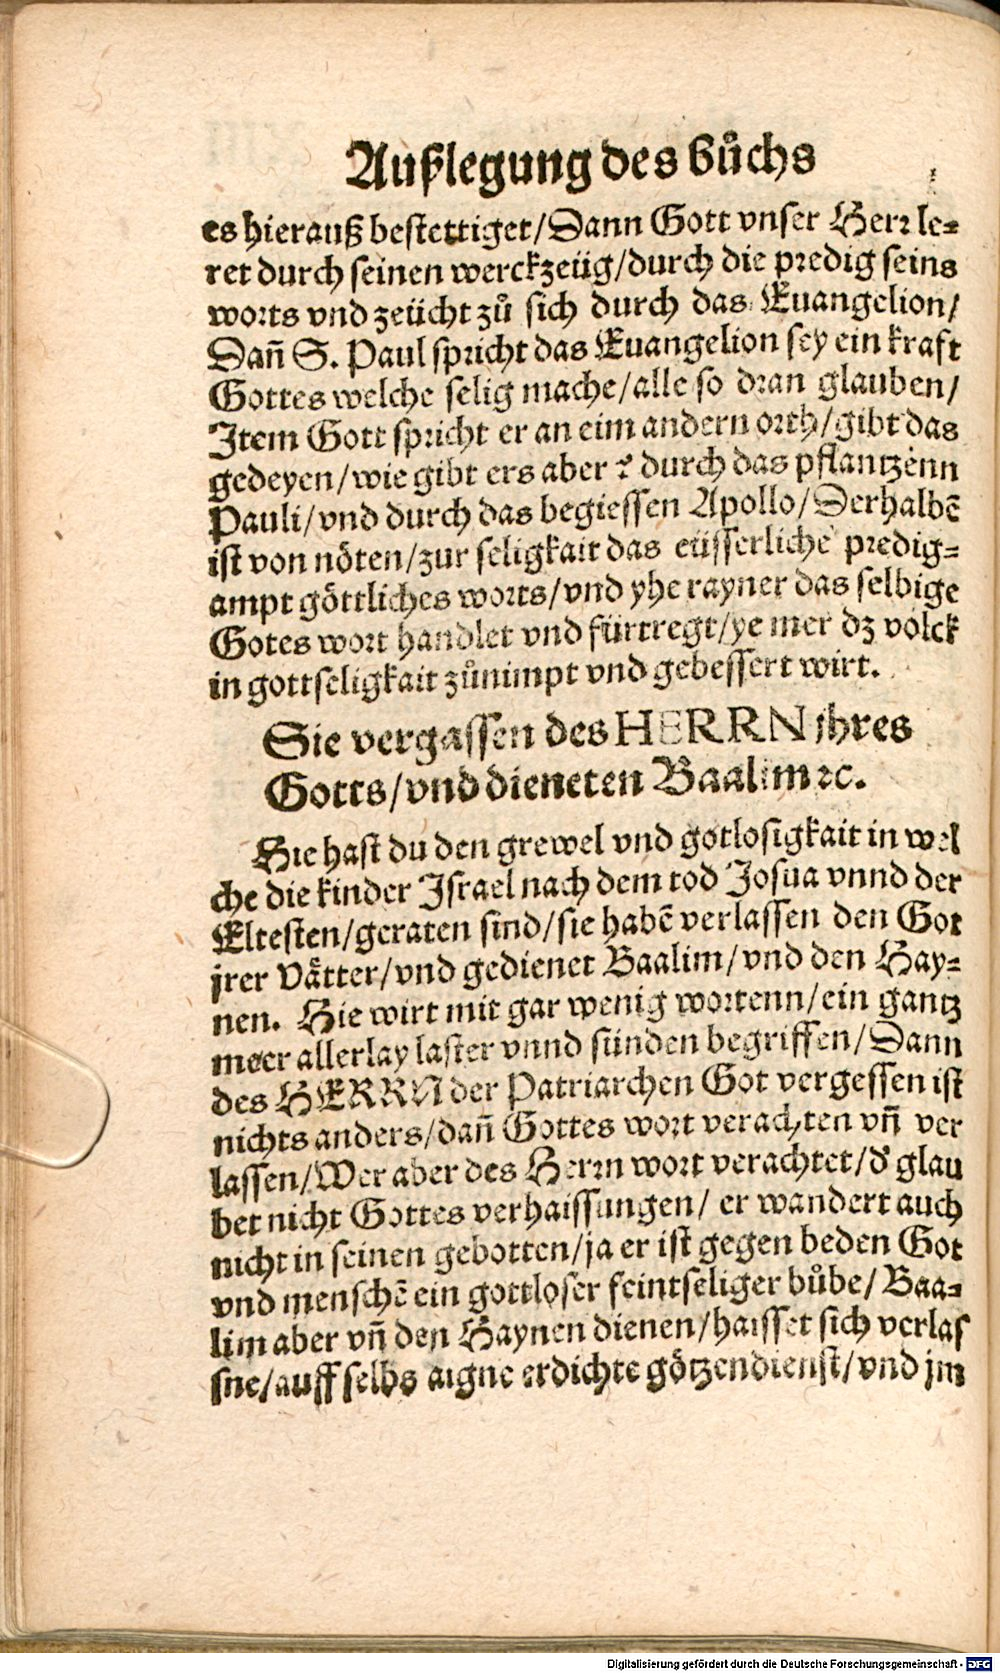 Außlegung des bůchs
es hierauß bestettiget/Dann Gott vnser Herr le-
ret durch seinen werckzeüg/durch die predig seins
worts vnd zeücht zů sich durch das Euangelion/
Dañ S. Paul spricht das Euangelion sey ein kraft
Gottes welche selig mache/alle so dran glauben/
Item Gott spricht er an eim andern orth/gibt das
gedeyen/wie gibt ers aber ? durch das pflantzenn
Pauli/vnd durch das begiessen Apollo/Derhalbẽ
ist von nöten/zur seligkait das eüsserliche predig-
ampt göttliches worts/vnd yhe rayner das selbige
Gotes wort handlet vnd fürtregt/ye mer dz volck
in gottseligkait zůnimpt vnd gebessert wirt.
Sie vergassen des HERRN jhres
Gotts/vnd dieneten Baalim ꝛc.
Hie hast du den grewel vnd gotlosigkait in wel
che die kinder Israel nach dem tod Josua vnnd der
Eltesten/geraten sind/sie habẽ verlassen den Got
jrer Vätter/vnd gedienet Baalim/vnd den Hay-
nen. Hie wirt mit gar wenig wortenn/ein gantz
meer allerlay laster vnnd sünden begriffen/Dann
des HERRN der Patriarchen Got vergessen ist
nichts anders/dañ Gottes wort verachten vñ ver
lassen/Wer aber des Herrn wort verachtet/d' glau
bet nicht Gottes verhaissungen/ er wandert auch
nicht in seinen gebotten/ja er ist gegen beden Got
vnd menschẽ ein gottloser feintseliger bůbe/ Baa-
lim aber vñ den Haynen dienen/haisset sich verlas
sne/auff selbs aigne erdichte götzendienst/vnd jm
Digitalisierung gefördert durch die Deutsche Forschungsgemeinschaft - DFG